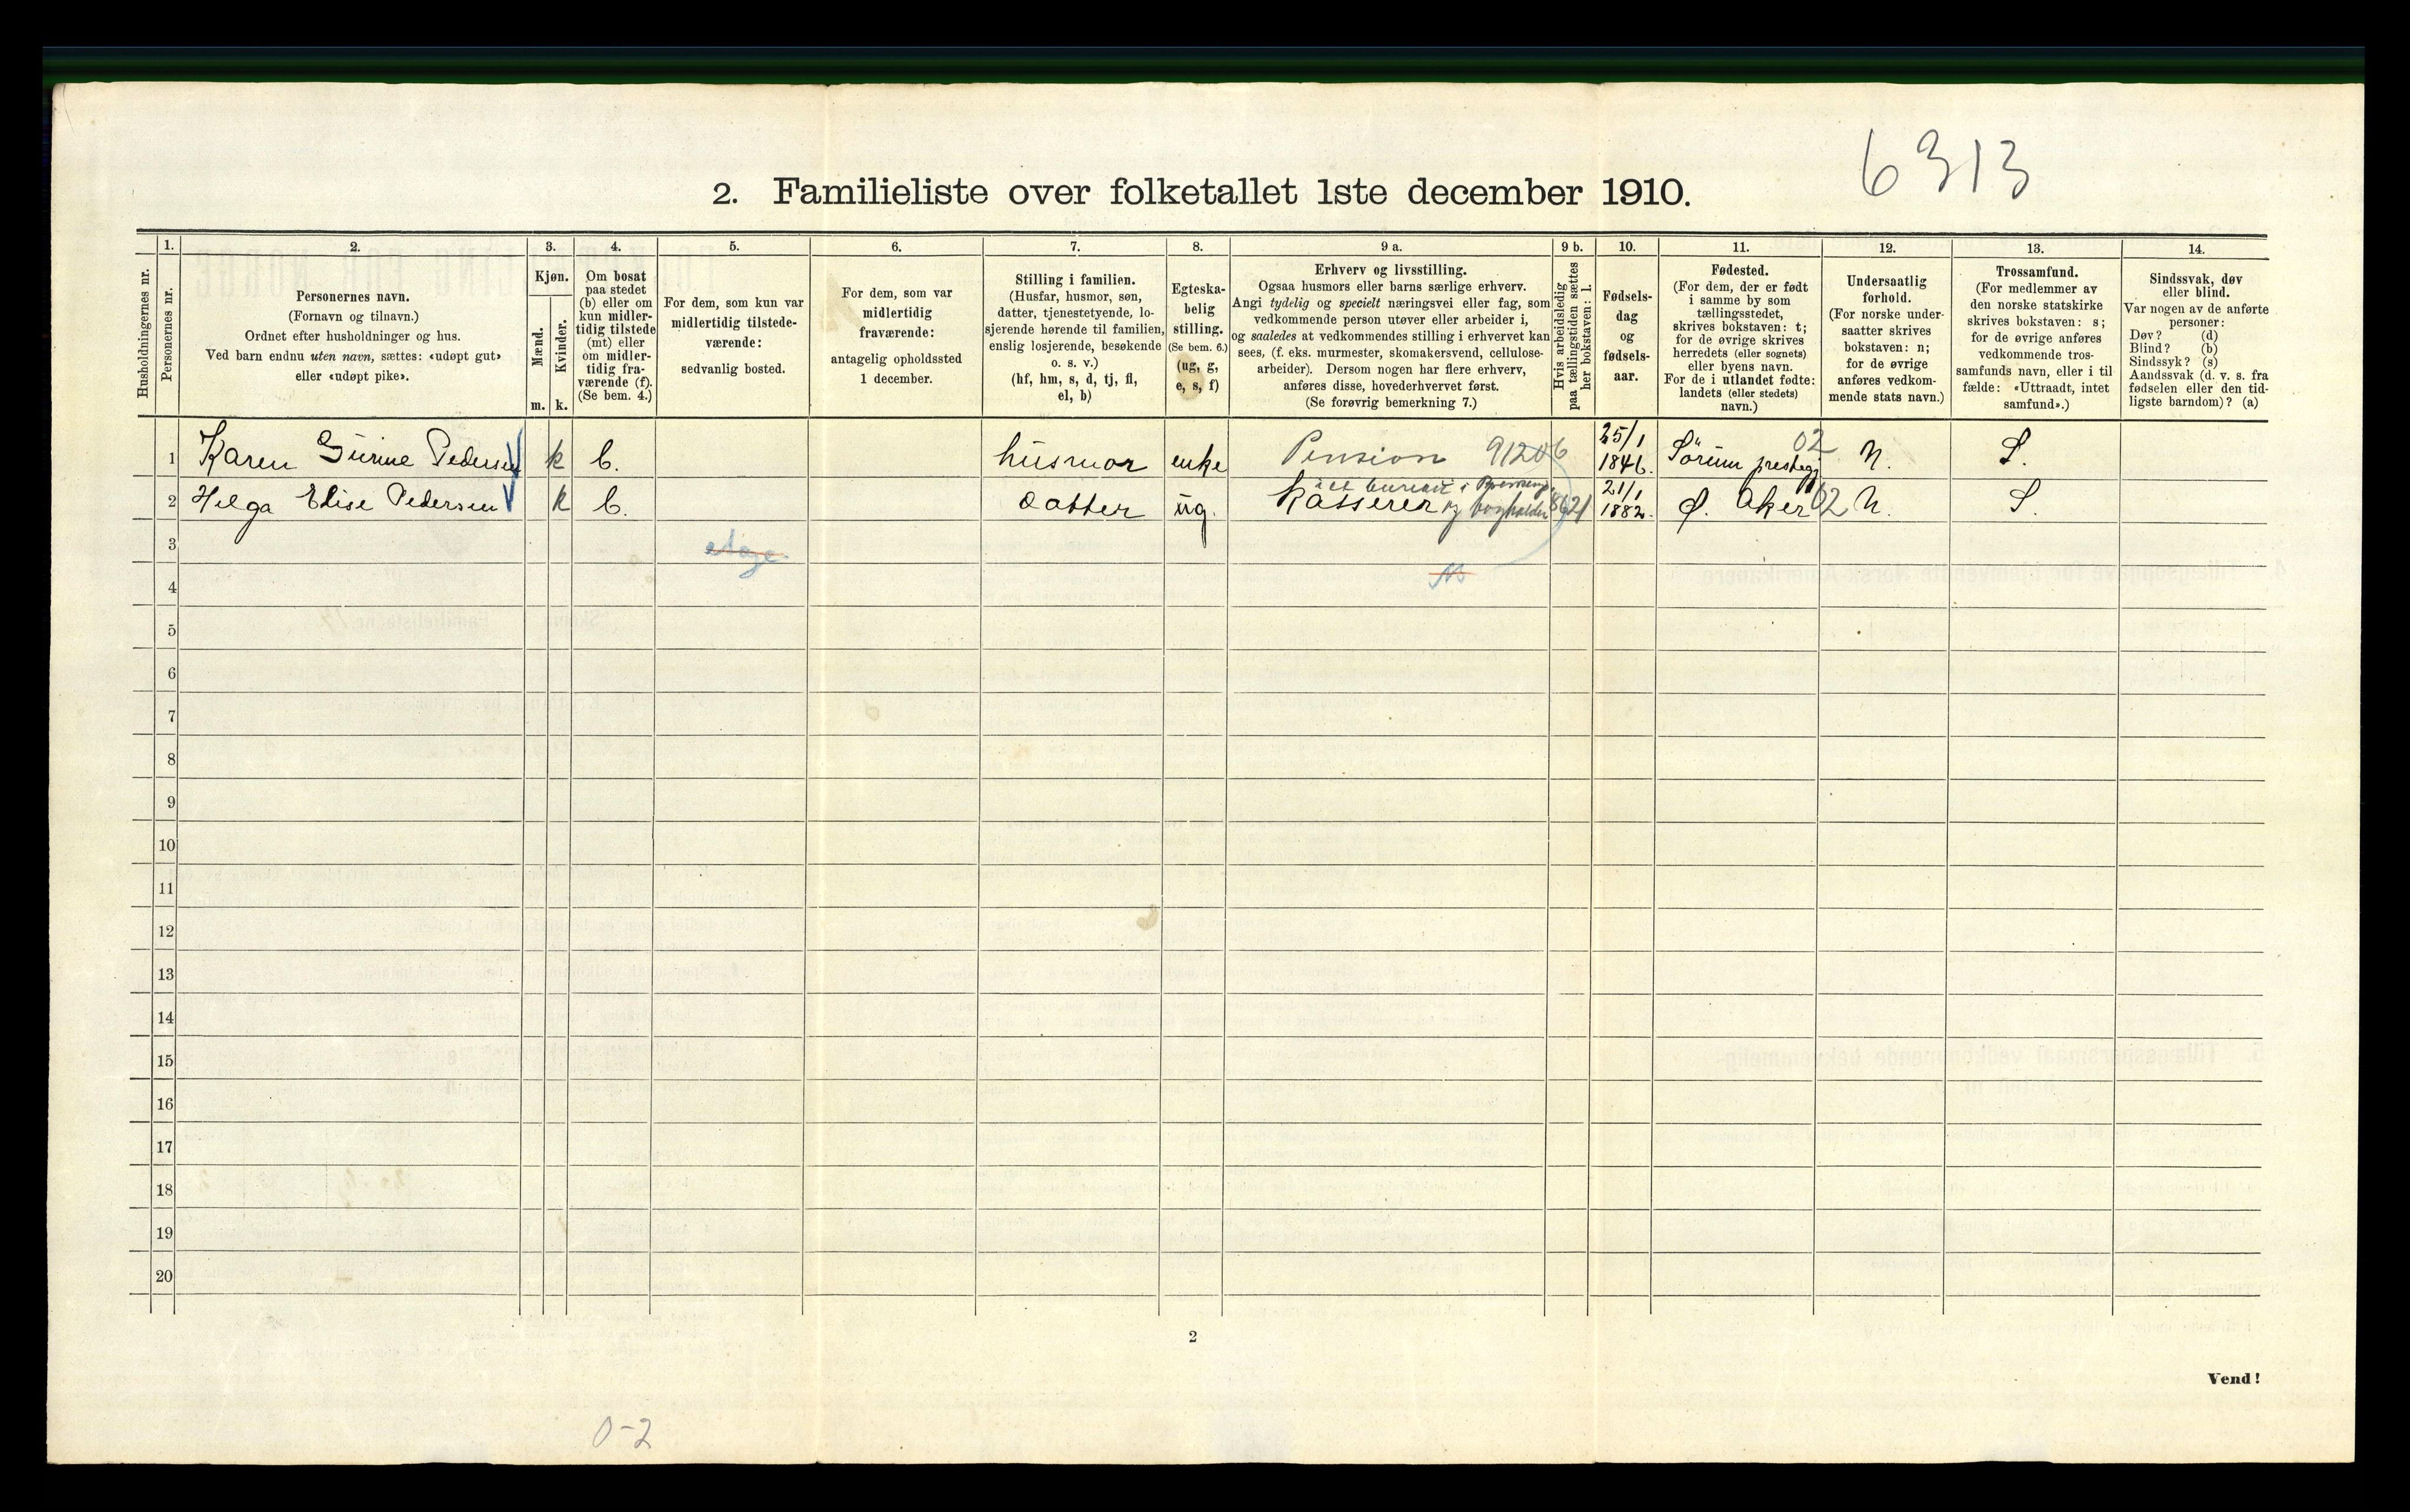 6313
2. Familieliste over folketallet 1ste december 1910.
Husholdningernes nr.
1.
Personernes nr.
2.
Personernes navn.
(Fornavn og tilnavn.)
Ordnet efter husholdninger og hus.
Ved barn endnu uten navn, sættes: «udøpt gut»
eller «udøpt pike».
3.
Kjøn.
Mænd.
Kvinder.
m. k.
4.
Om bosat
paa stedet
(b) eller om
kun midler-
tidig tilstede
(mt) eller
om midler-
tidig fra-
værende (f).
(Se bem. 4.)
5.
For dem, som kun var
midlertidig tilstede-
værende:
sedvanlig bosted.
6.
For dem, som var
midlertidig
fraværende:
antagelig opholdssted
1 december.
7.
Stilling i familien.
(Husfar, husmor, søn,
datter, tjenestetyende, lo-
sjerende hørende til familien,
enslig losjerende, besøkende
o. s. v.)
(hf, hm, s, d, tj, fl,
el, b)
8.
Egteska-
belig
stilling.
(Se bem. 6.)
(ug, g,
e, s, f)
9 a.
Erhverv og livsstilling.
Ogsaa husmors eller barns særlige erhverv.
Angi tydelig og specielt næringsvei eller fag, som
vedkommende person utøver eller arbeider i,
og saaledes at vedkommendes stilling i erhvervet kan
sees, (f. eks. murmester, skomakersvend, cellulose-
arbeider). Dersom nogen har flere erhverv,
anføres disse, hovederhvervet først.
(Se forøvrig bemerkning 7.)
9 b.
Hvis arbeidsledig
paa tællingstiden sættes
her bokstaven: l.
10.
Fødsels-
dag
og
fødsels-
aar.
11.
Fødested.
(For dem, der er født
i samme by som
tællingsstedet,
skrives bokstaven: t;
for de øvrige skrives
herredets (eller sognets)
eller byens navn.
For de i utlandet fødte:
landets (eller stedets)
navn.)
12.
Undersaatlig
forhold.
(For norske under-
saatter skrives
bokstaven: n;
for de øvrige
anføres vedkom-
mende stats navn.)
13.
Trossamfund.
(For medlemmer av
den norske statskirke
skrives bokstaven: s;
for de øvrige anføres
vedkommende tros-
samfunds navn, eller i til
fælde: «Uttraadt, intet
samfund».)
14.
Sindssvak, døv
eller blind.
Var nogen av de anførte
personer:
Døv? (d)
Blind? (b)
Sindssyk? (s)
Aandssvak (d. v. s. fra
fødselen eller den tid-
ligste barndom)? (a)
1 Karen Gurine Pedersen k b. husmor enke Pension 91206 25/1 1846. Sörum presteg 02 N. S.
2 Helga Elise Pedersen k b. datter ug. kasserer og bogholder 21/1 1882. Ø. Aker 02 N. S.
3
4
5
6
7
8
9
10
11
12
13
14
15
16
17
18
19
20
2
Vend!
0-2